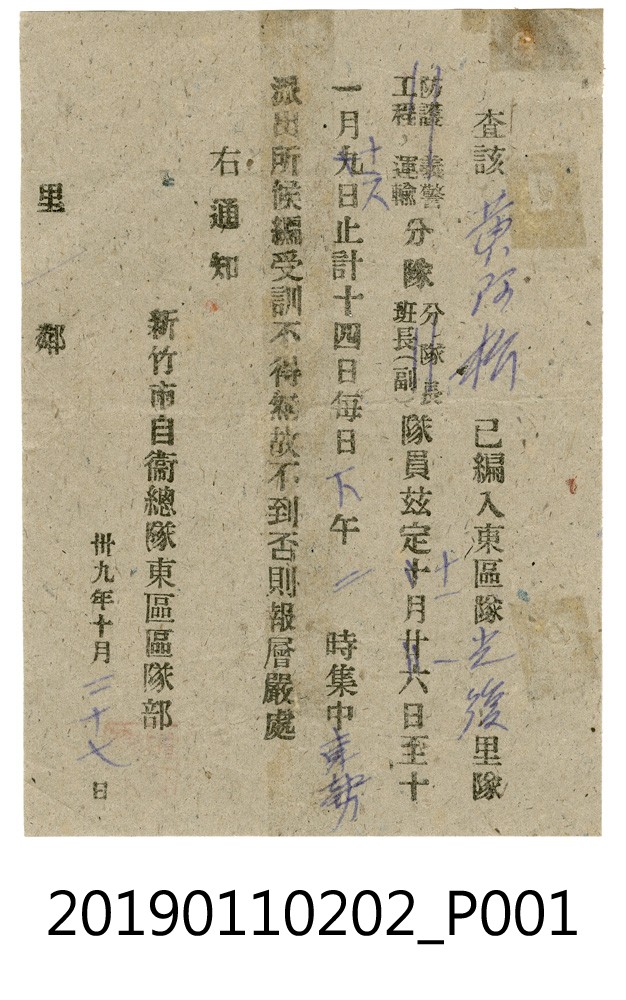 查該黃阿㭊已編入東區隊光復里隊
防護 義警
工程，運輸
分隊
分隊長
班長（副）
隊員茲定十月廿六日至十
十一 一
一月九日止計十四日每日下午二時集中東勢
十六
派出所候編受訓不得無故不到否則報層嚴處
右通知
新竹市自衛總隊東區區隊部
卅九年十月二十七日
里 鄰
20190110202_P001